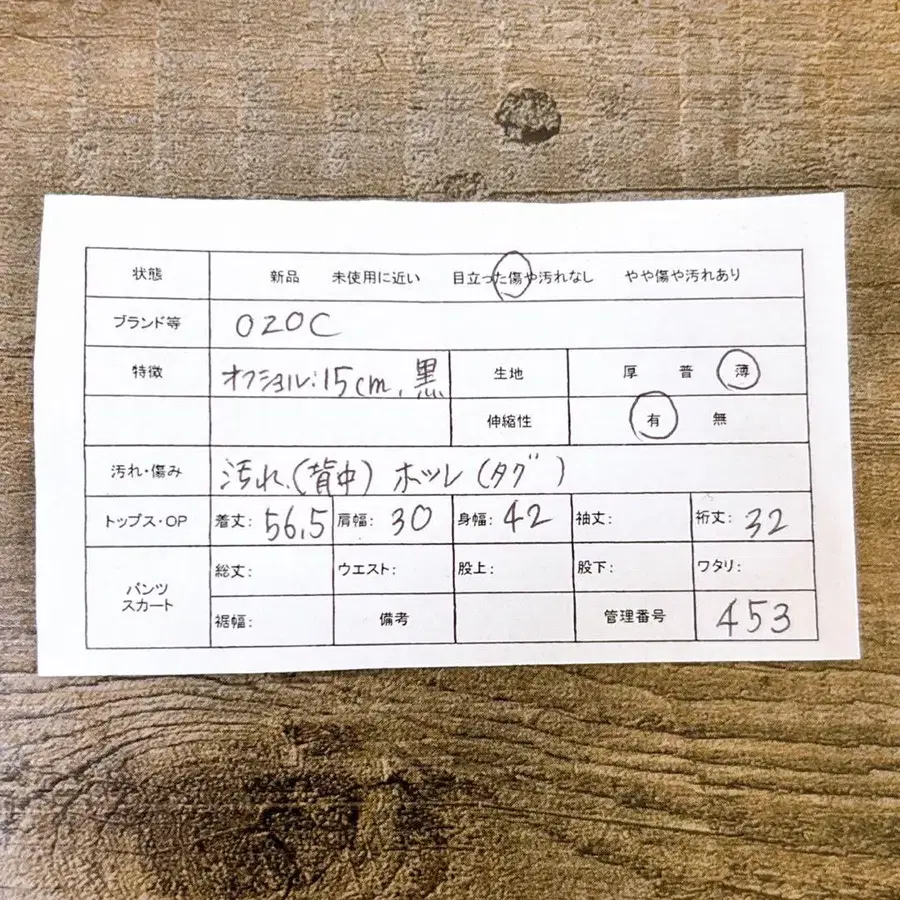 状態 新品 未使用に近い 目立った傷や汚れなし やや傷や汚れあり
ブランド等 020C
特徴 オフショル:15cm、黒 生地 厚 普 薄
伸縮性 有 無
汚れ・傷み 汚れ、(背中) ホツレ(タグ)
トップス・OP 着丈: 56,5 肩幅: 30 身幅: 42 袖丈: 裄丈: 32
パンツ
スカート
総丈: ウエスト: 股上: 股下: ワタリ:
裾幅: 備考 管理番号 453